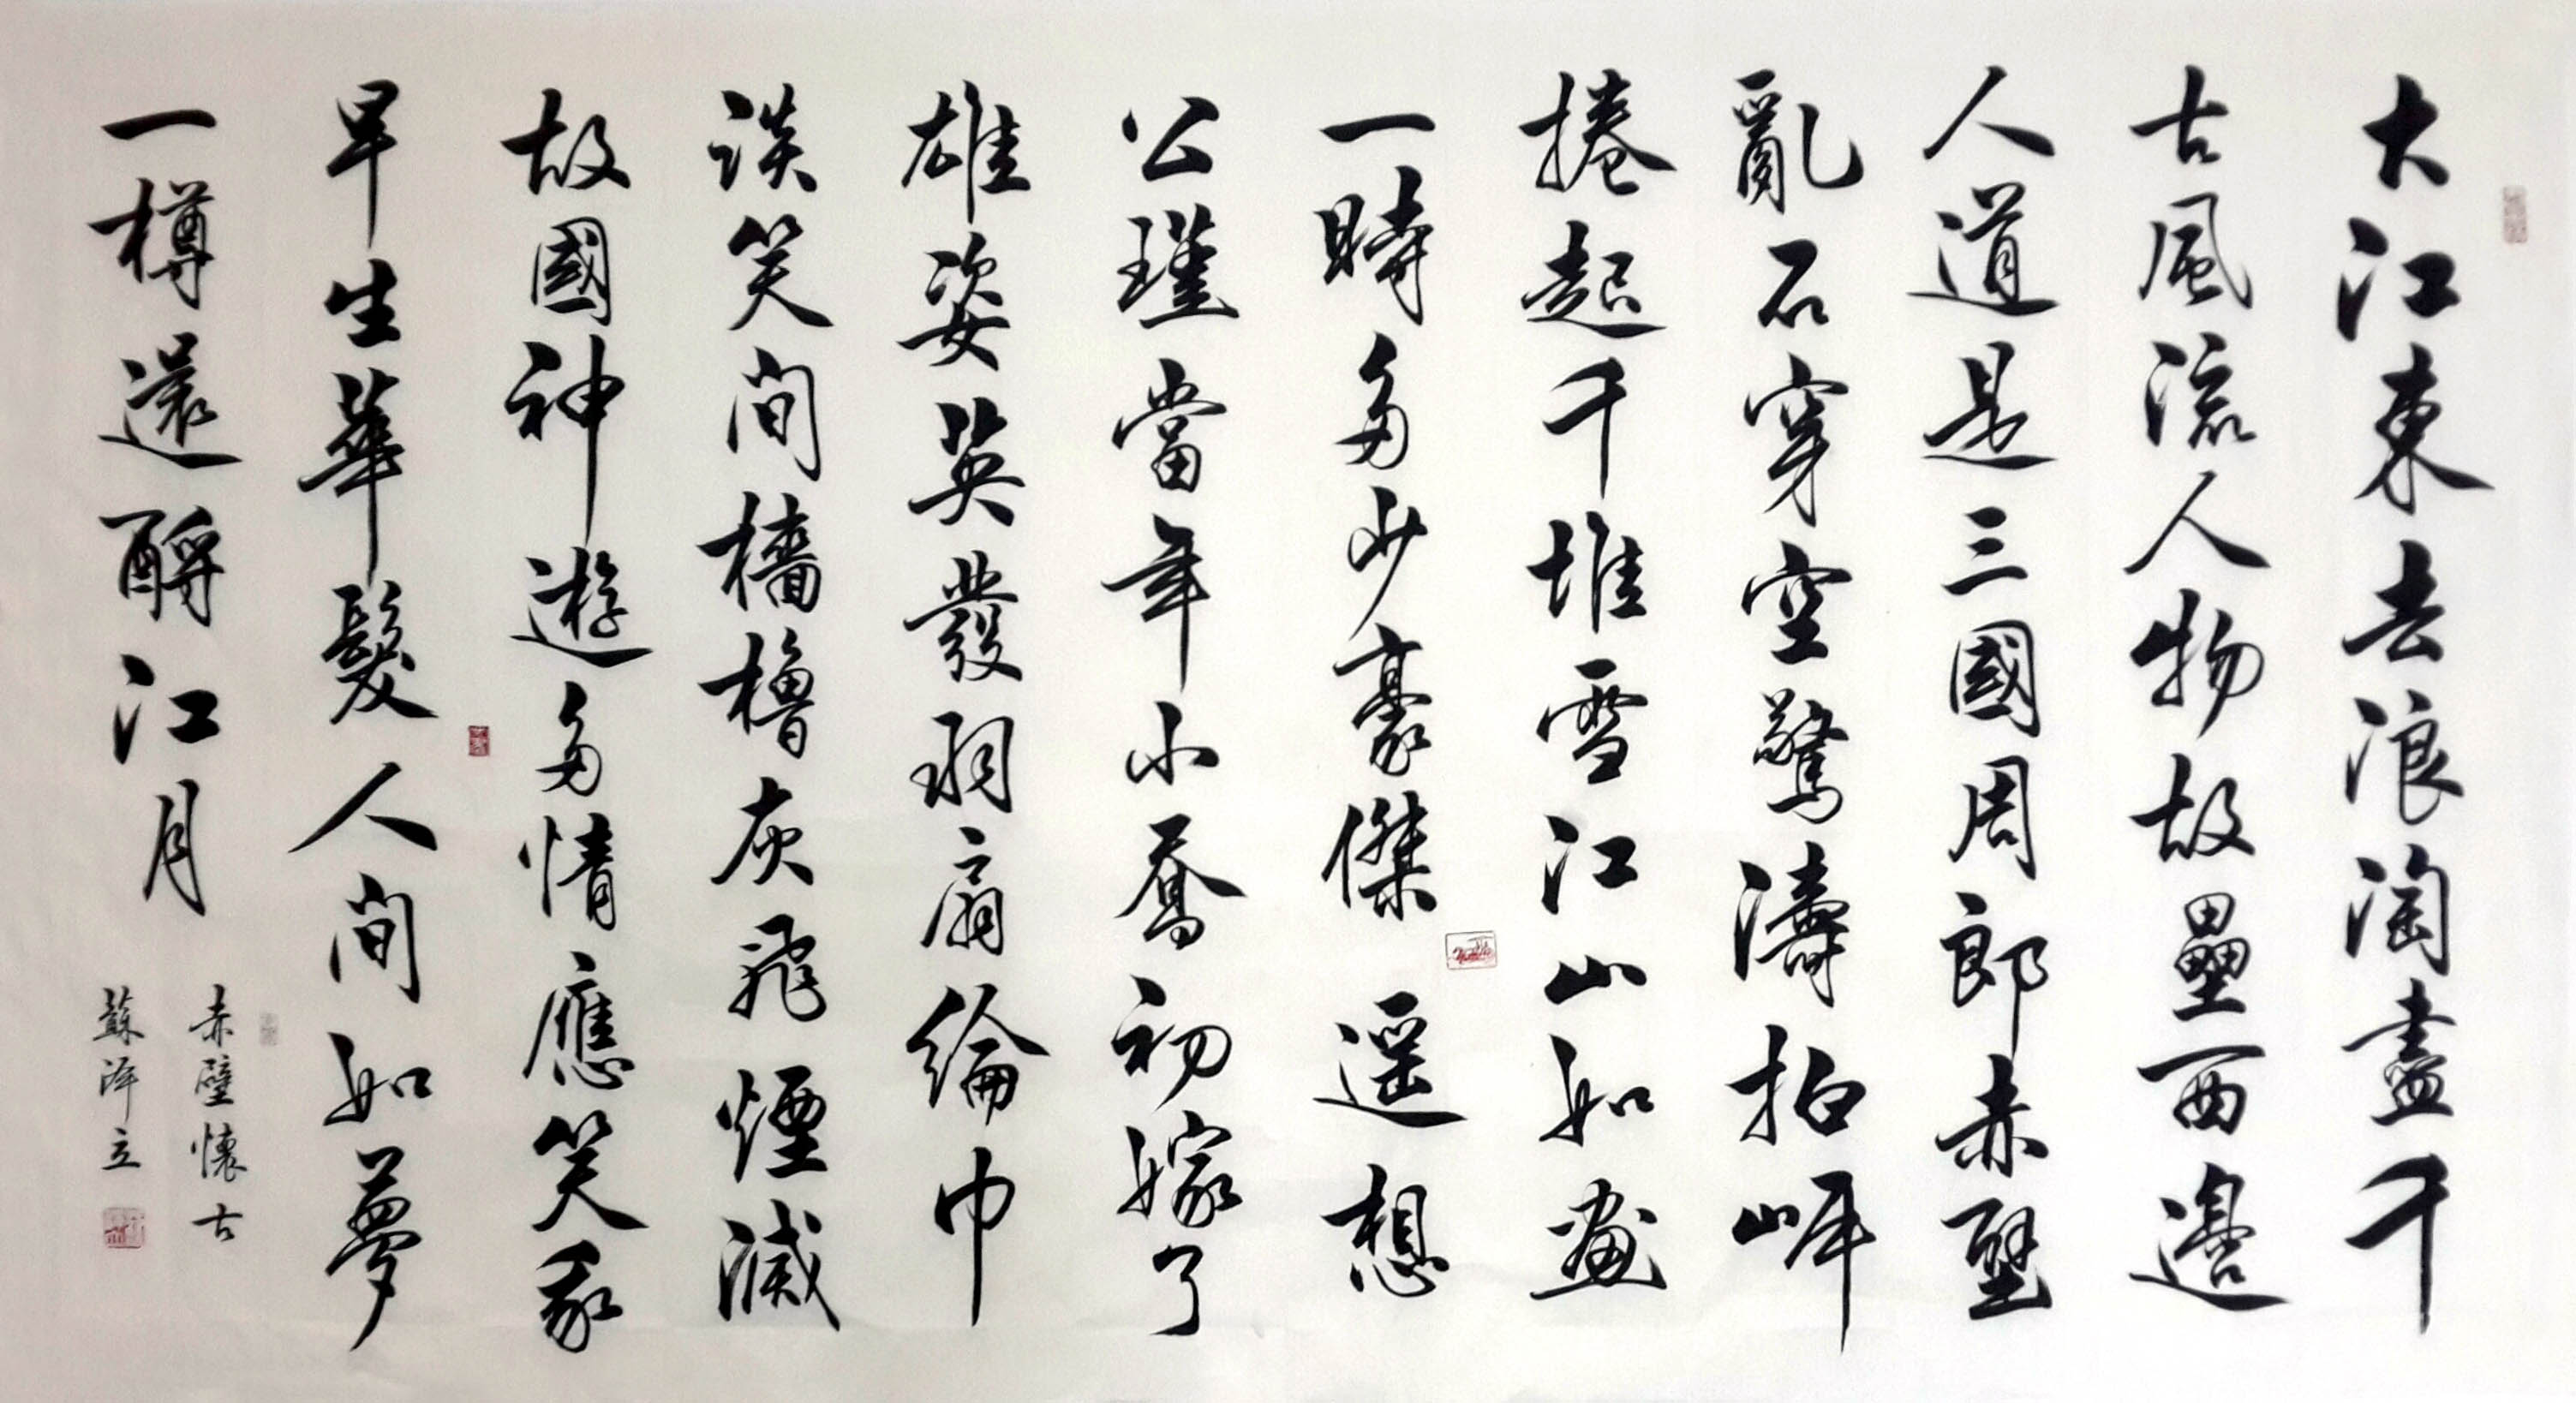 大江東去浪淘盡千
古風流人物故壘西邊
人道是三國周郎赤壁
亂石穿空驚濤拍岸
捲起千堆雪江山如畫
一時多少豪傑 遥想
公瑾當年小喬初嫁了
雄姿英發羽扇綸巾
談笑間檣櫓灰飛煙滅
故國神遊多情應笑我
早生華髮人間如夢
一樽還酹江月
赤壁懷古
蘇泽立